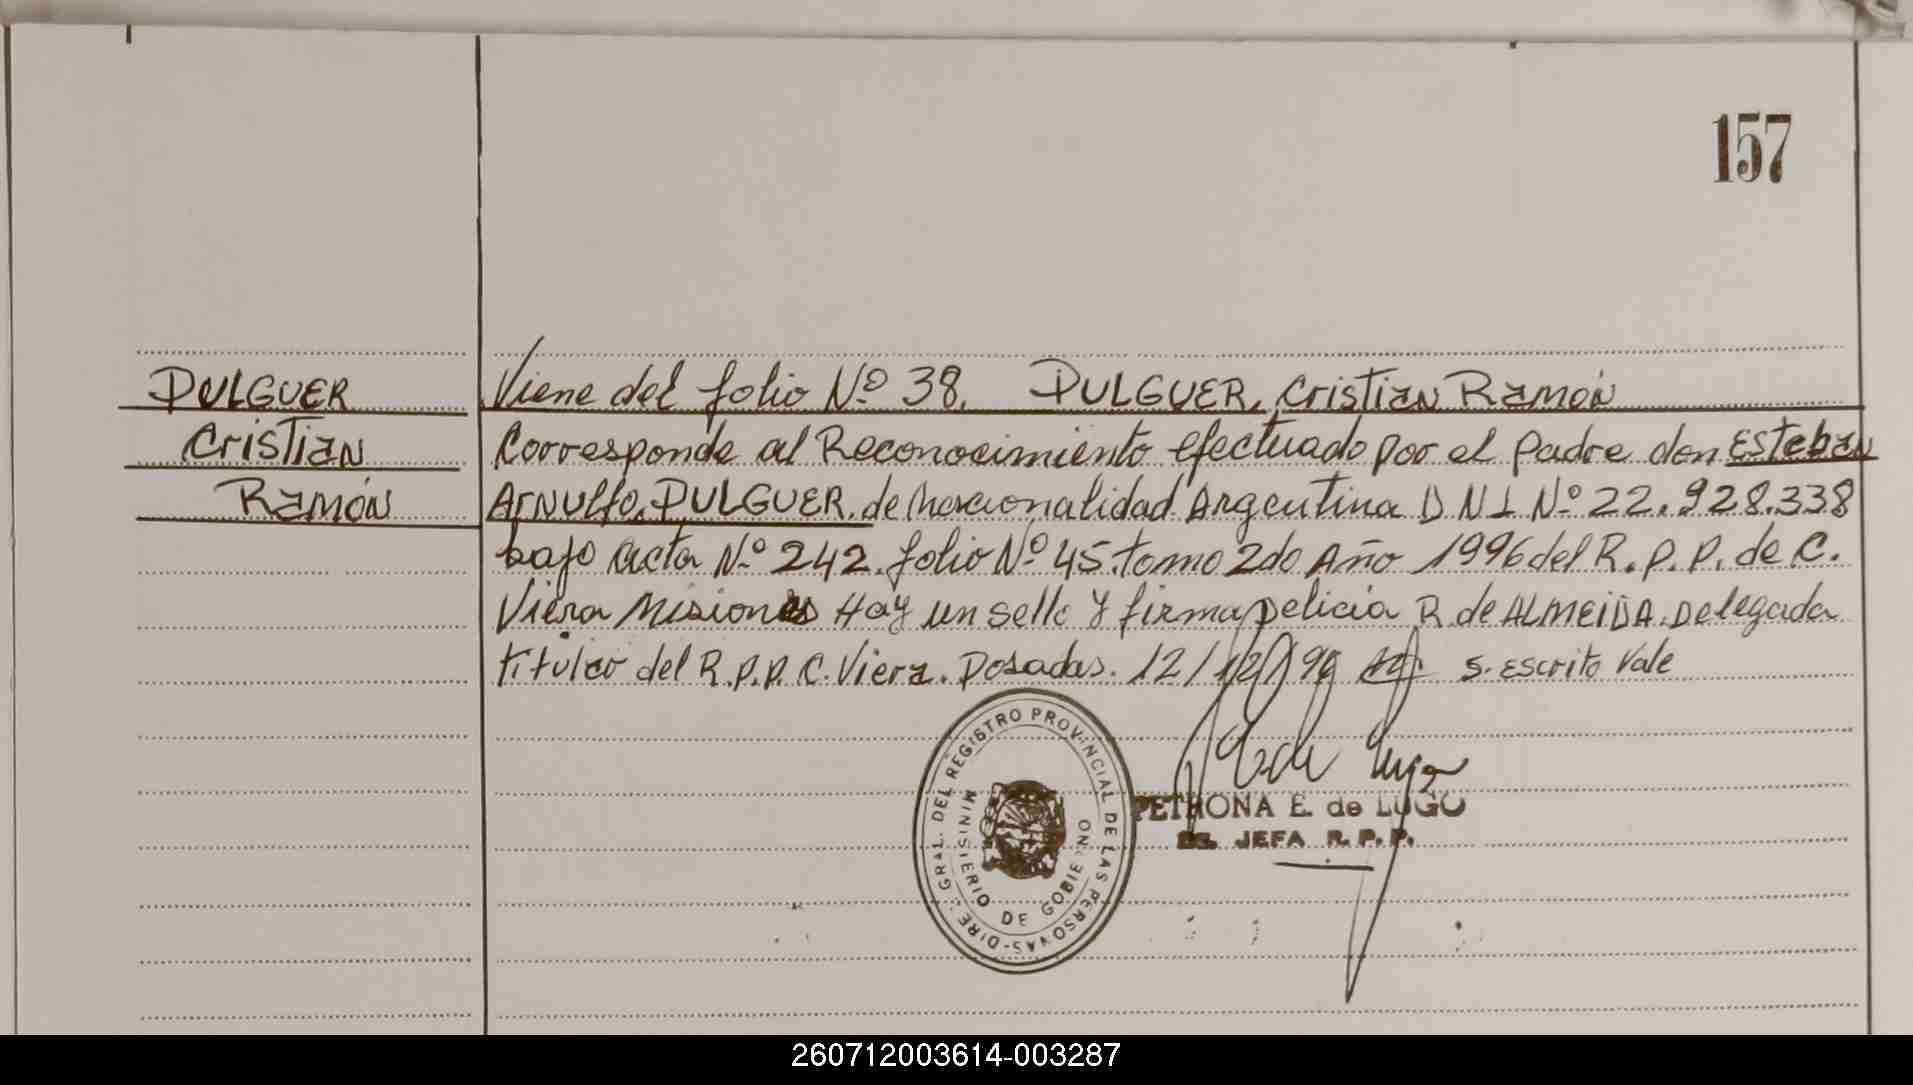 157
PULGUER
Cristian
Ramón
Viene del folio Nº 38. PULGUER, Cristian Ramón
Corresponde al Reconocimiento efectuado por el padre don Esteban
Arnulfo PULGUER, de nacionalidad Argentina D N I Nº 22.928.338
bajo acta Nº 242 folio Nº 45 tomo 2do Año 1996 del R.P.P. de C.
Viera Misiones Hay un sello y firma felicia R. de ALMEIDA Delegada
titular del R.P.P. C. Viera. Posadas. 12/12/96 S. escrito Vale
DIRE. GRAL. DEL REGISTRO PROVINCIAL DE LAS PERSONAS
MINISTERIO DE GOBIERNO
PETRONA E. de LUGO
JEFA R.P.P.
260712003614-003287